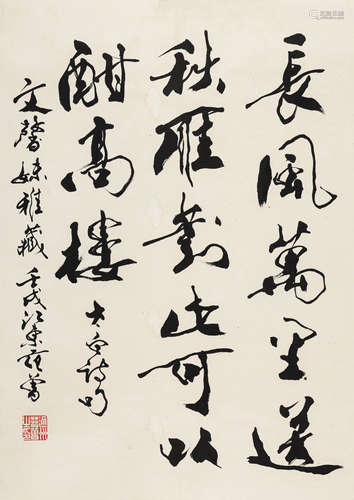 長風萬里送
秋雁對此可以
酣高樓 太白詩句
文馨妹雅藏 壬戌江東范曾